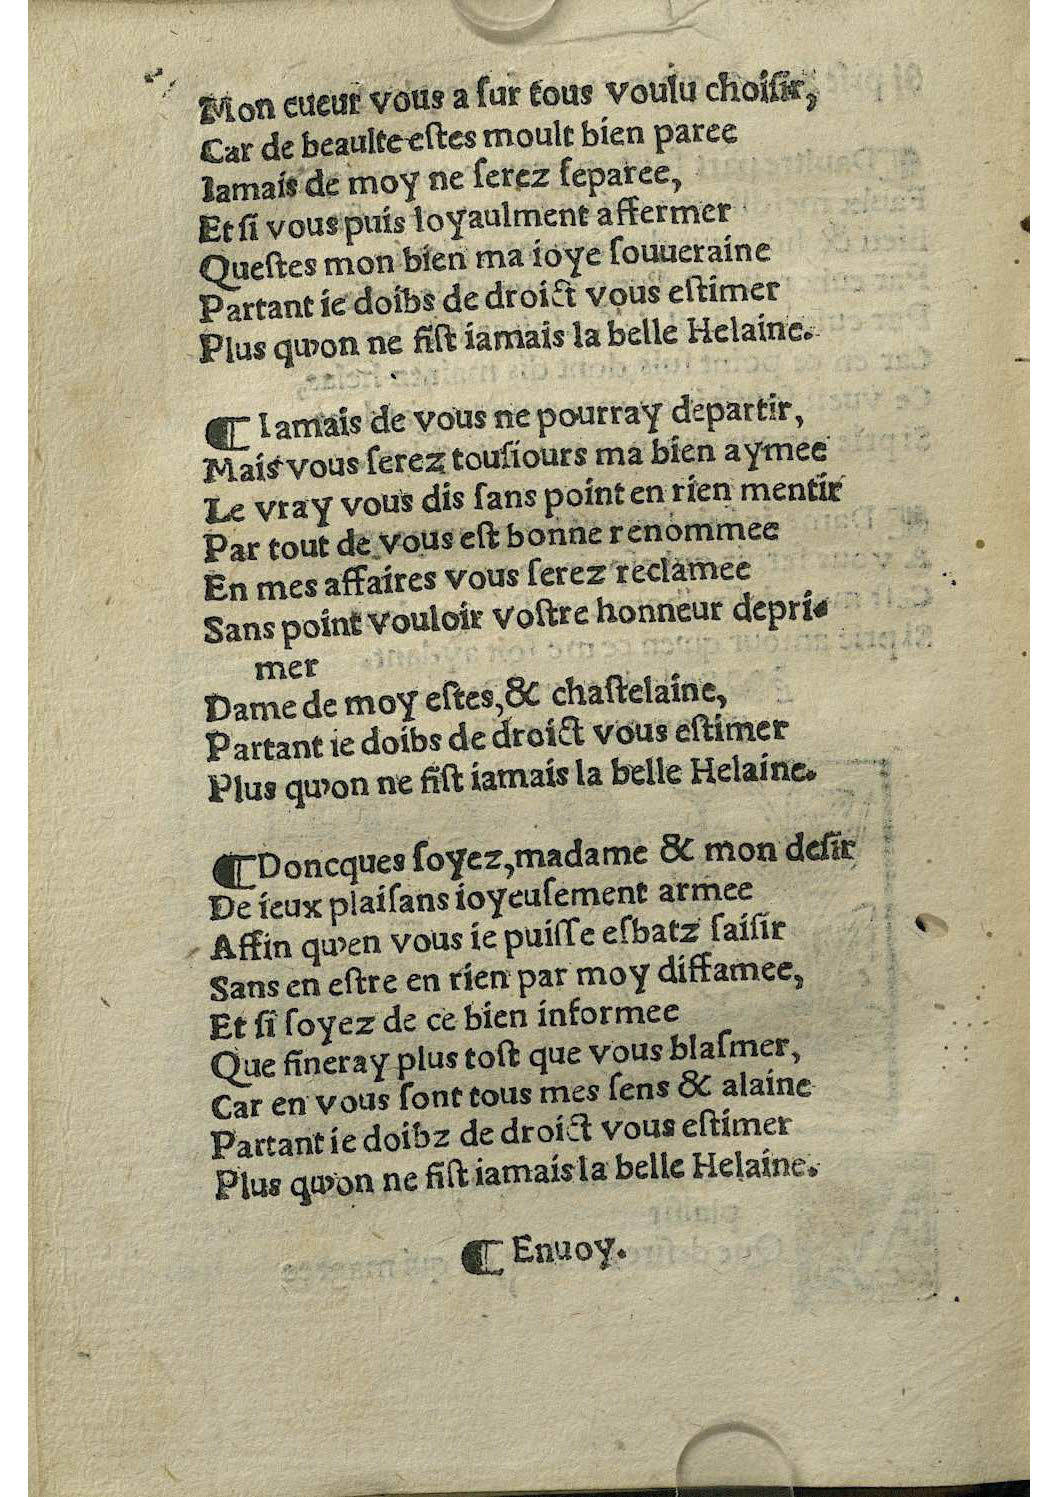 Mon cueur vous a ſur tous voulu choiſir,
Car de beaulte eſtes moult bien paree
Iamais de moy ne ſerez ſeparee,
Et ſi vous puis loyaulment affermer
Queſtes mon bien ma ioye ſouueraine
Partant ie doibs de droict vous eſtimer
Plus qu'on ne fiſt iamais la belle Helaine.
¶ Iamais de vous ne pourray departir,
Mais vous ſerez touſiours ma bien aymee
Le vray vous dis ſans point en rien mentir
Par tout de vous eſt bonne renommee
En mes affaires vous ſerez reclamee
Sans point vouloir voſtre honneur depri-
mer
Dame de moy eſtes, & chaſtelaine,
Partant ie doibs de droict vous eſtimer
Plus qu'on ne fiſt iamais la belle Helaine.
¶ Doncques ſoyez, madame & mon deſir
De ieux plaiſans ioyeuſement armee
Affin qu'en vous ie puiſſe eſbatz ſaiſir
Sans en eſtre en rien par moy diffamee,
Et ſi ſoyez de ce bien informee
Que fineray plus toſt que vous blaſmer,
Car en vous ſont tous mes ſens & alaine
Partant ie doibz de droict vous eſtimer
Plus qu'on ne fiſt iamais la belle Helaine.
¶ Enuoy.